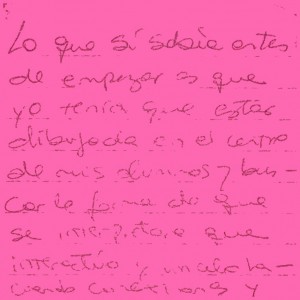 Lo que sí sabía antes
de empezar es que
yo tenía que estar
dibujada en el centro
de mis alumnos y bus-
car la forma de que
se que
interactúo y
conexiones y